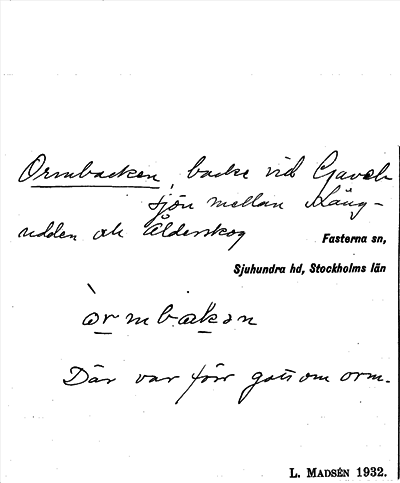 Ormbacken, backe vid Gavel-
sjön mellan Lång-
udden och Ålderskog
Fasterna sn,
Sjuhundra hd, Stockholms län
òrmbakən
Där var förr gott om orm.
L. MADSÉN 1932.